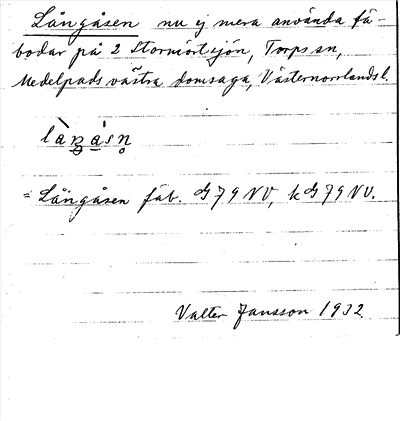 Långåsen nu ej mera använda fä-
bodar på 2 Stormörtsjön, Torps sn,
Medelpads västra domsaga, Västernorrlands l.
= Långåsen fäb. G79NV, kG79NV.
Valter Jansson 1932